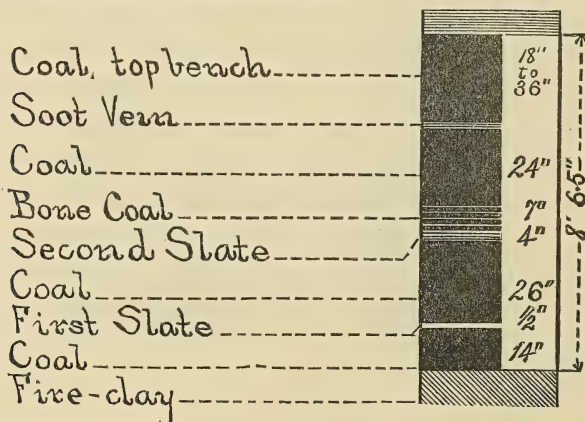 Coal, top bench
18"
to
36"
Soot Vein
Coal
24"
Bone Coal
7"
Second Slate
4"
Coal
26"
First Slate
½"
Coal
14"
Fire-clay
8' 6.5"